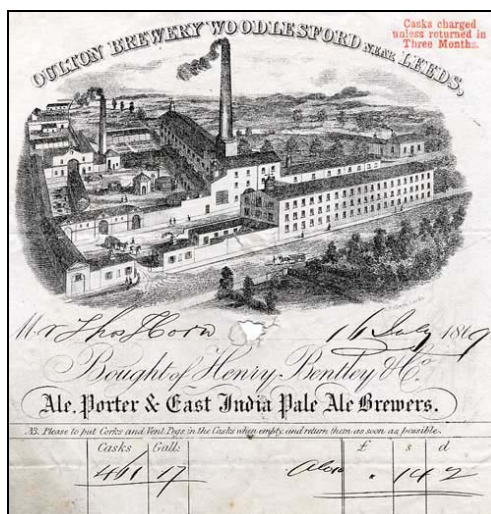 OULTON BREWERY WOODLESFORD NEAR LEEDS,
Casks charged
unless returned in
Three Months.
Mr Thos Horn 16 July 1869
Bought of Henry Bentley & Co.
Ale, Porter & East India Pale Ale Brewers.
NB. Please to put Corks and Vent Pegs in the Casks when empty, and return them as soon as possible.
Casks Galls £ s d
461 17 14 2